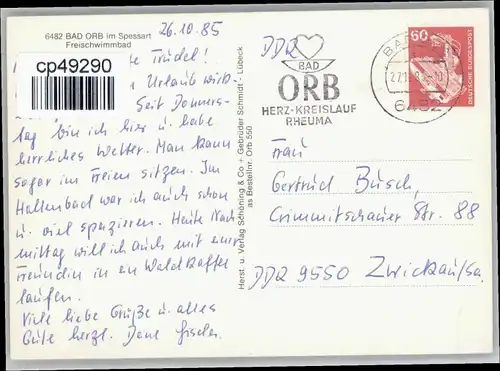 6482 BAD ORB im Spessart
Freischwimmbad
26.10.85
Trudel!
cp49290
Urlaub
Seit Donners-
tag bin ich hier u. habe
herrliches Wetter. Man kann
sogar im Freien sitzen. Im
Hallenbad war ich auch schon
u. viel spazieren. Heute Nach-
mittag will ich auch mit einer
Freundin in ein Waldkaffee
laufen.
Viele liebe Grüße u. alles
Gute herzl. Deine
Herst. u. Verlag Schöning & Co + Gebrüder Schmidt · Lübeck
Bestellnr. Orb 550
DDR
BAD
ORB
HERZ-KREISLAUF
RHEUMA
6482
60
DEUTSCHE BUNDESPOST
Frau
Gertrud Busch,
Crimmitschauer Str. 88
DDR 9550 Zwickau/Sa.